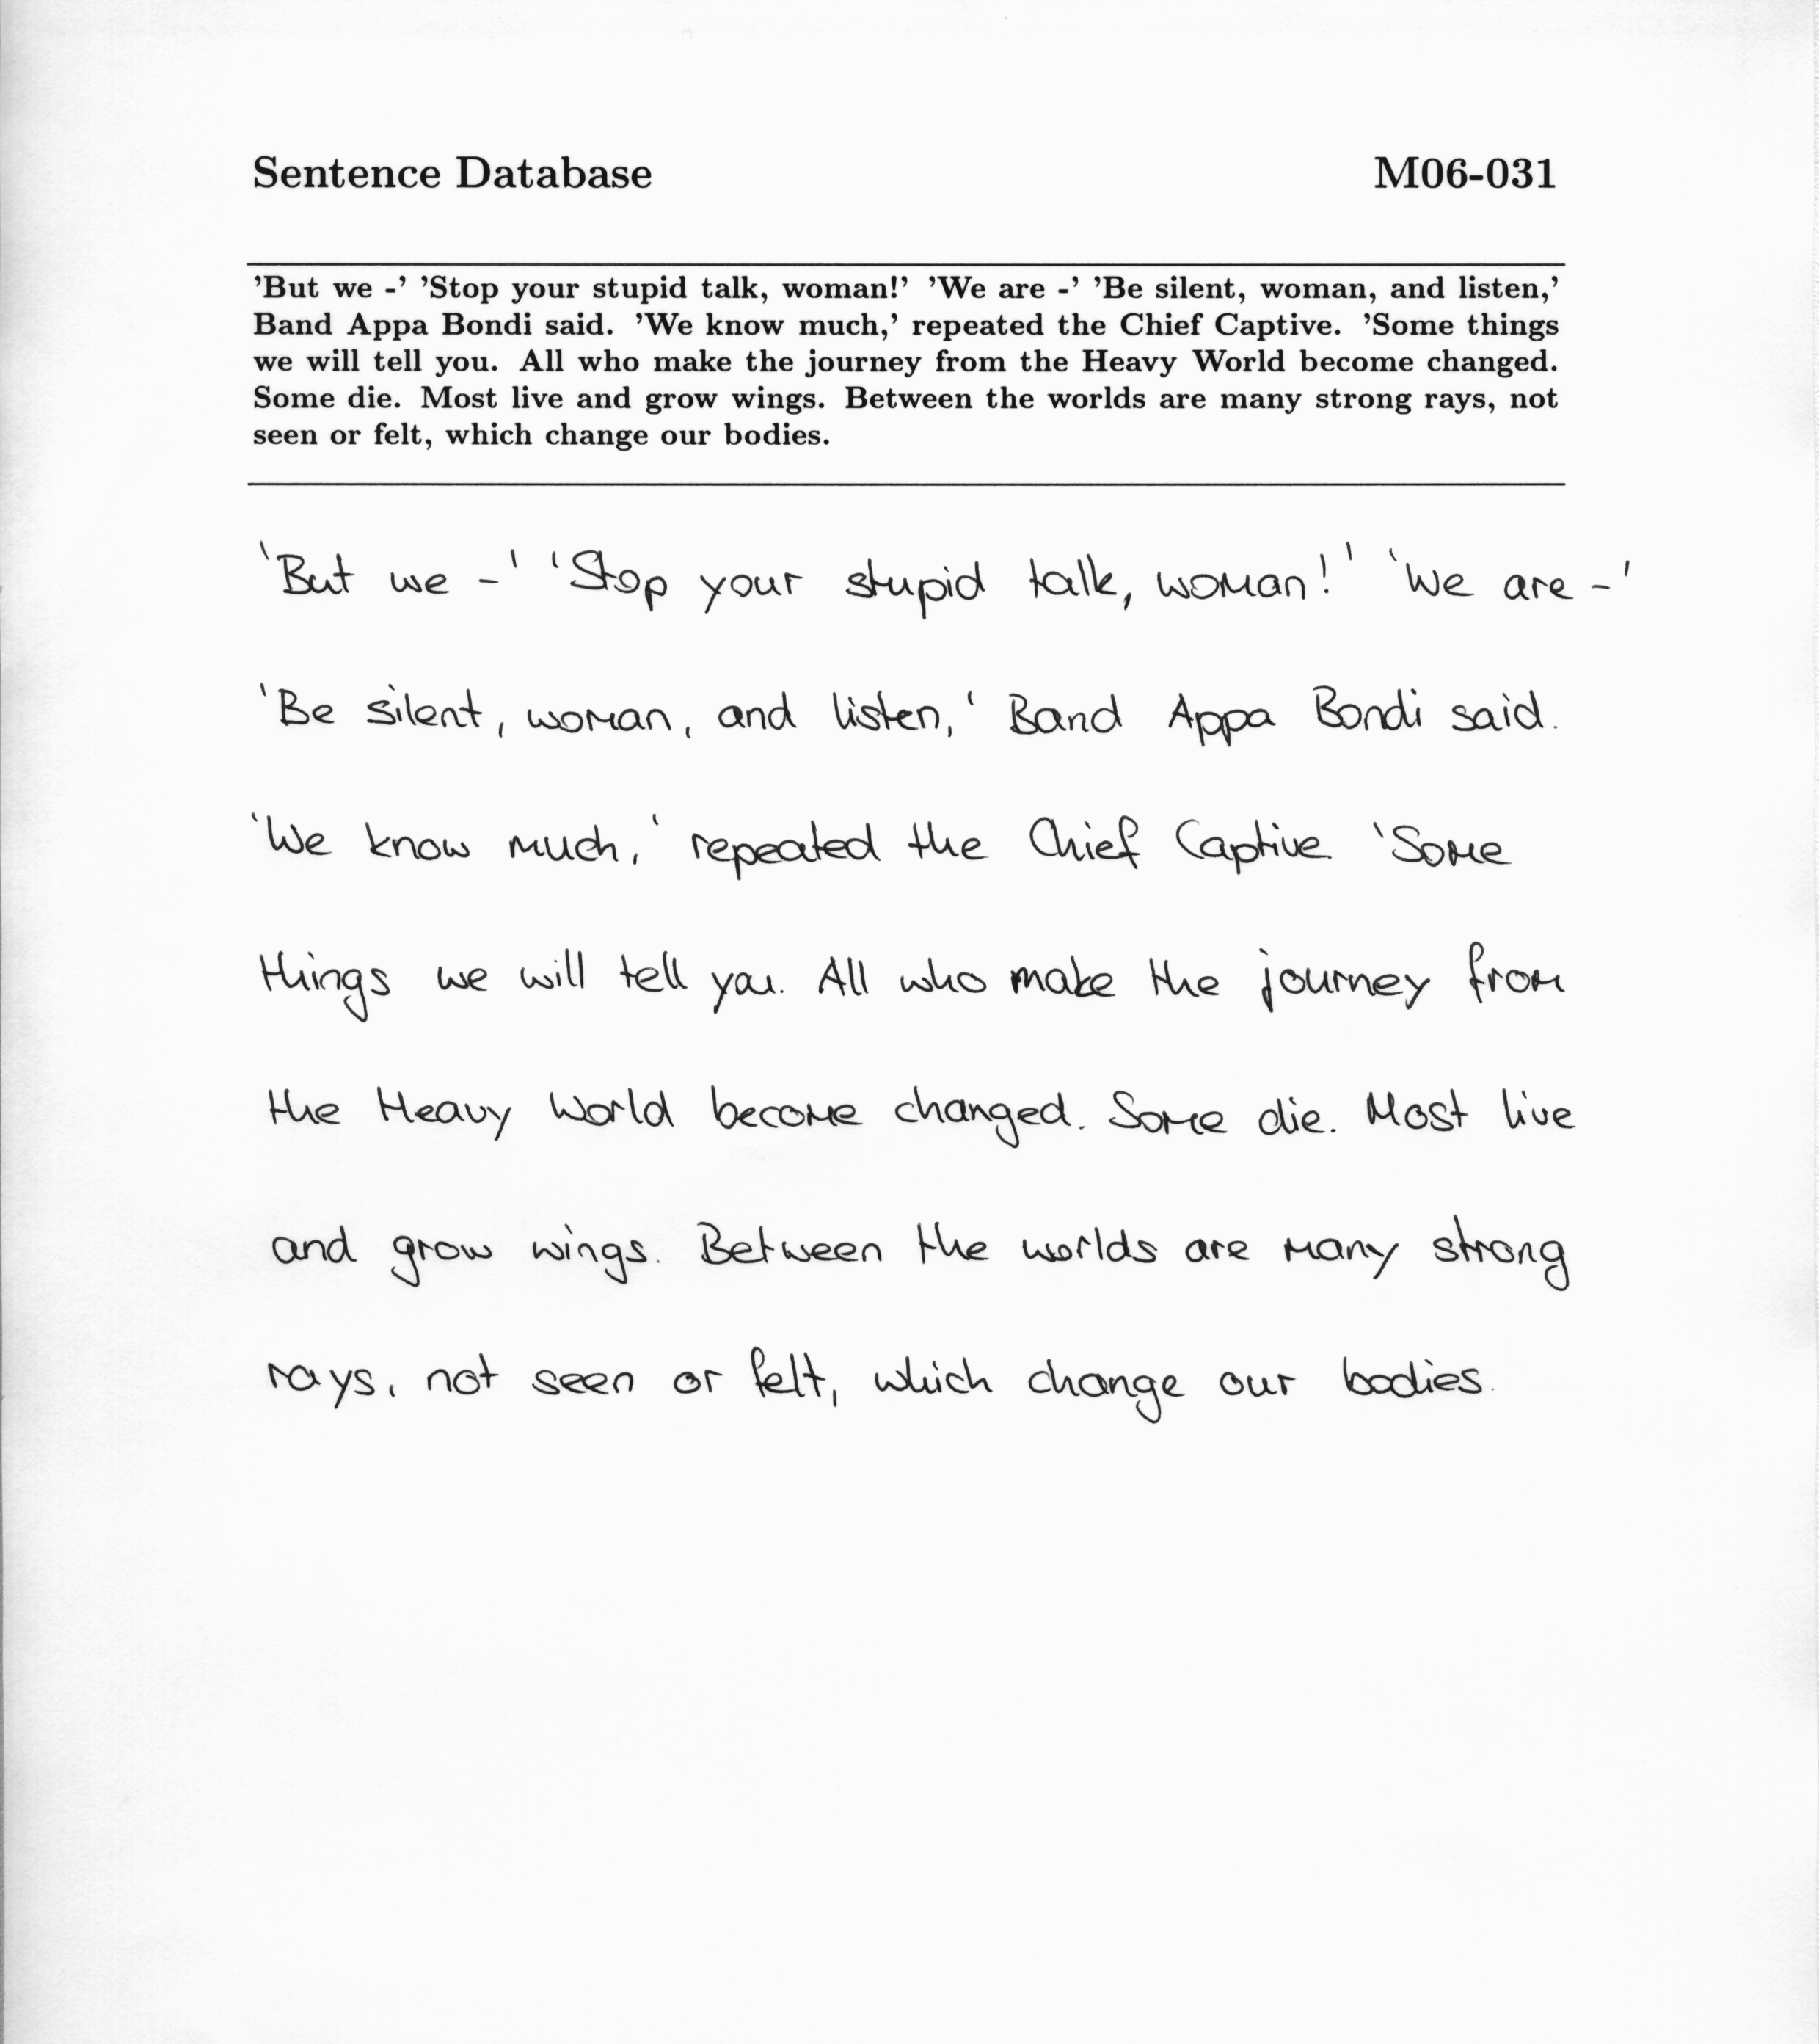 Sentence Database M06-031
’But we -’ ’Stop your stupid talk, woman!’ ’We are -’ ’Be silent, woman, and listen,’
Band Appa Bondi said. ’We know much,’ repeated the Chief Captive. ’Some things
we will tell you. All who make the journey from the Heavy World become changed.
Some die. Most live and grow wings. Between the worlds are many strong rays, not
seen or felt, which change our bodies.
'But we -' 'Stop your stupid talk, woman!' 'We are -'
'Be silent, woman, and listen,' Band Appa Bondi said.
'We know much,' repeated the Chief Captive. 'Some
things we will tell you. All who make the journey from
the Heavy World become changed. Some die. Most live
and grow wings. Between the worlds are many strong
rays, not seen or felt, which change our bodies.